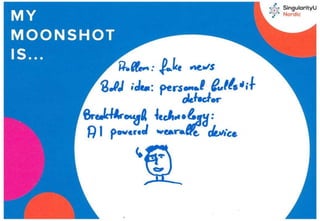 MY
MOONSHOT
IS...
SingularityU
Nordic
Problem: fake news
Bold idea: personal bullshit
detector
Breakthrough technology:
AI powered wearable device